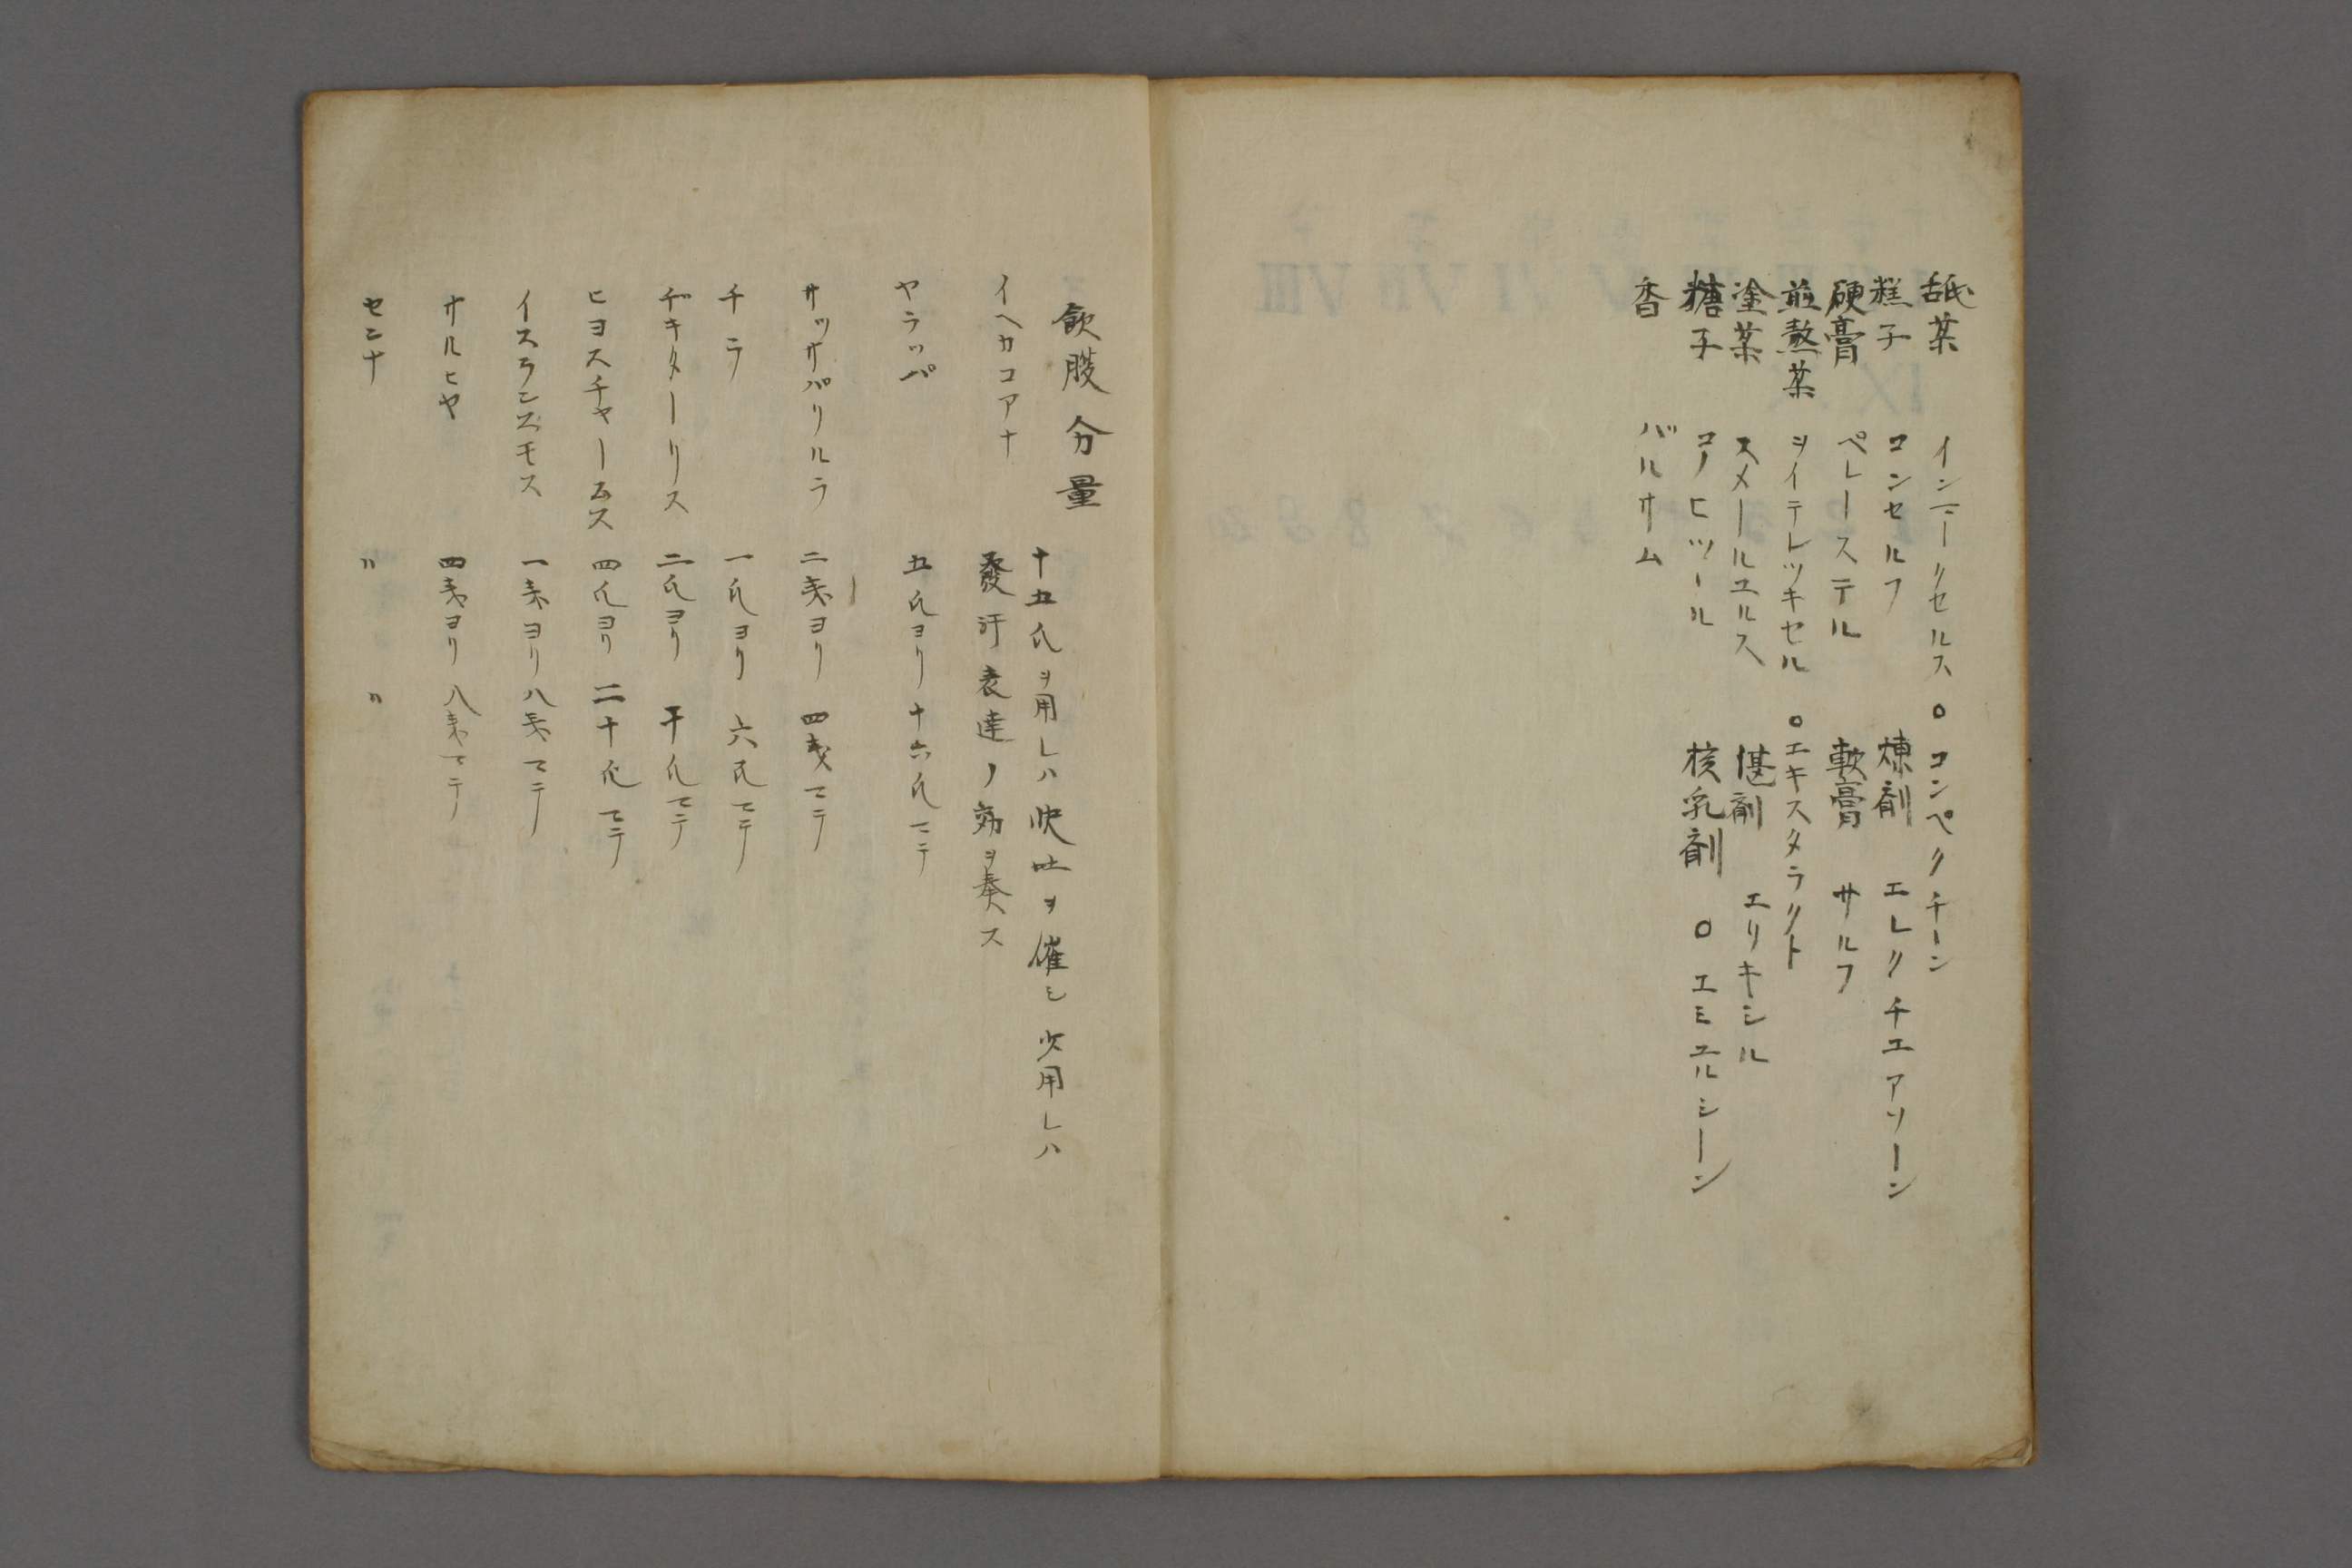 舐薬 インニークセルス ○コンペクチーン
糕子 コンセルフ 煉劑 エレクチエアリーン
硬膏 ペレーステル 軟膏 サルフ
煎熬薬 ヲイテレツキセル ○エキスタラクト
塗薬 スメールユルス 偡劑 エリキシル
糖子 コノヒツール 核乳劑 ○エミユルシーン
香 バルサム
飲服分量
イヘカコアナ 十五氏ヲ用レハ快吐ヲ催シ少用レハ
發汗表達ノ効ヲ奏ス
ヤラッパ 五氏ヨリ十六氏マテ
サッサパリルラ 二 ヨリ 四 マテ
チラ 一氏ヨリ 六氏マテ
チキターリス 二氏ヨリ 十氏マテ
ヒヨスチャームス 四氏ヨリ 二十氏マテ
イスランズモス 一 ヨリ八 マテ
サルヒヤ 四 ヨリ 八 マテ
センナ 〃 〃